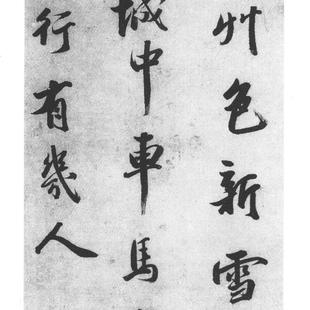 艸色新雪
城中車馬
行有幾人